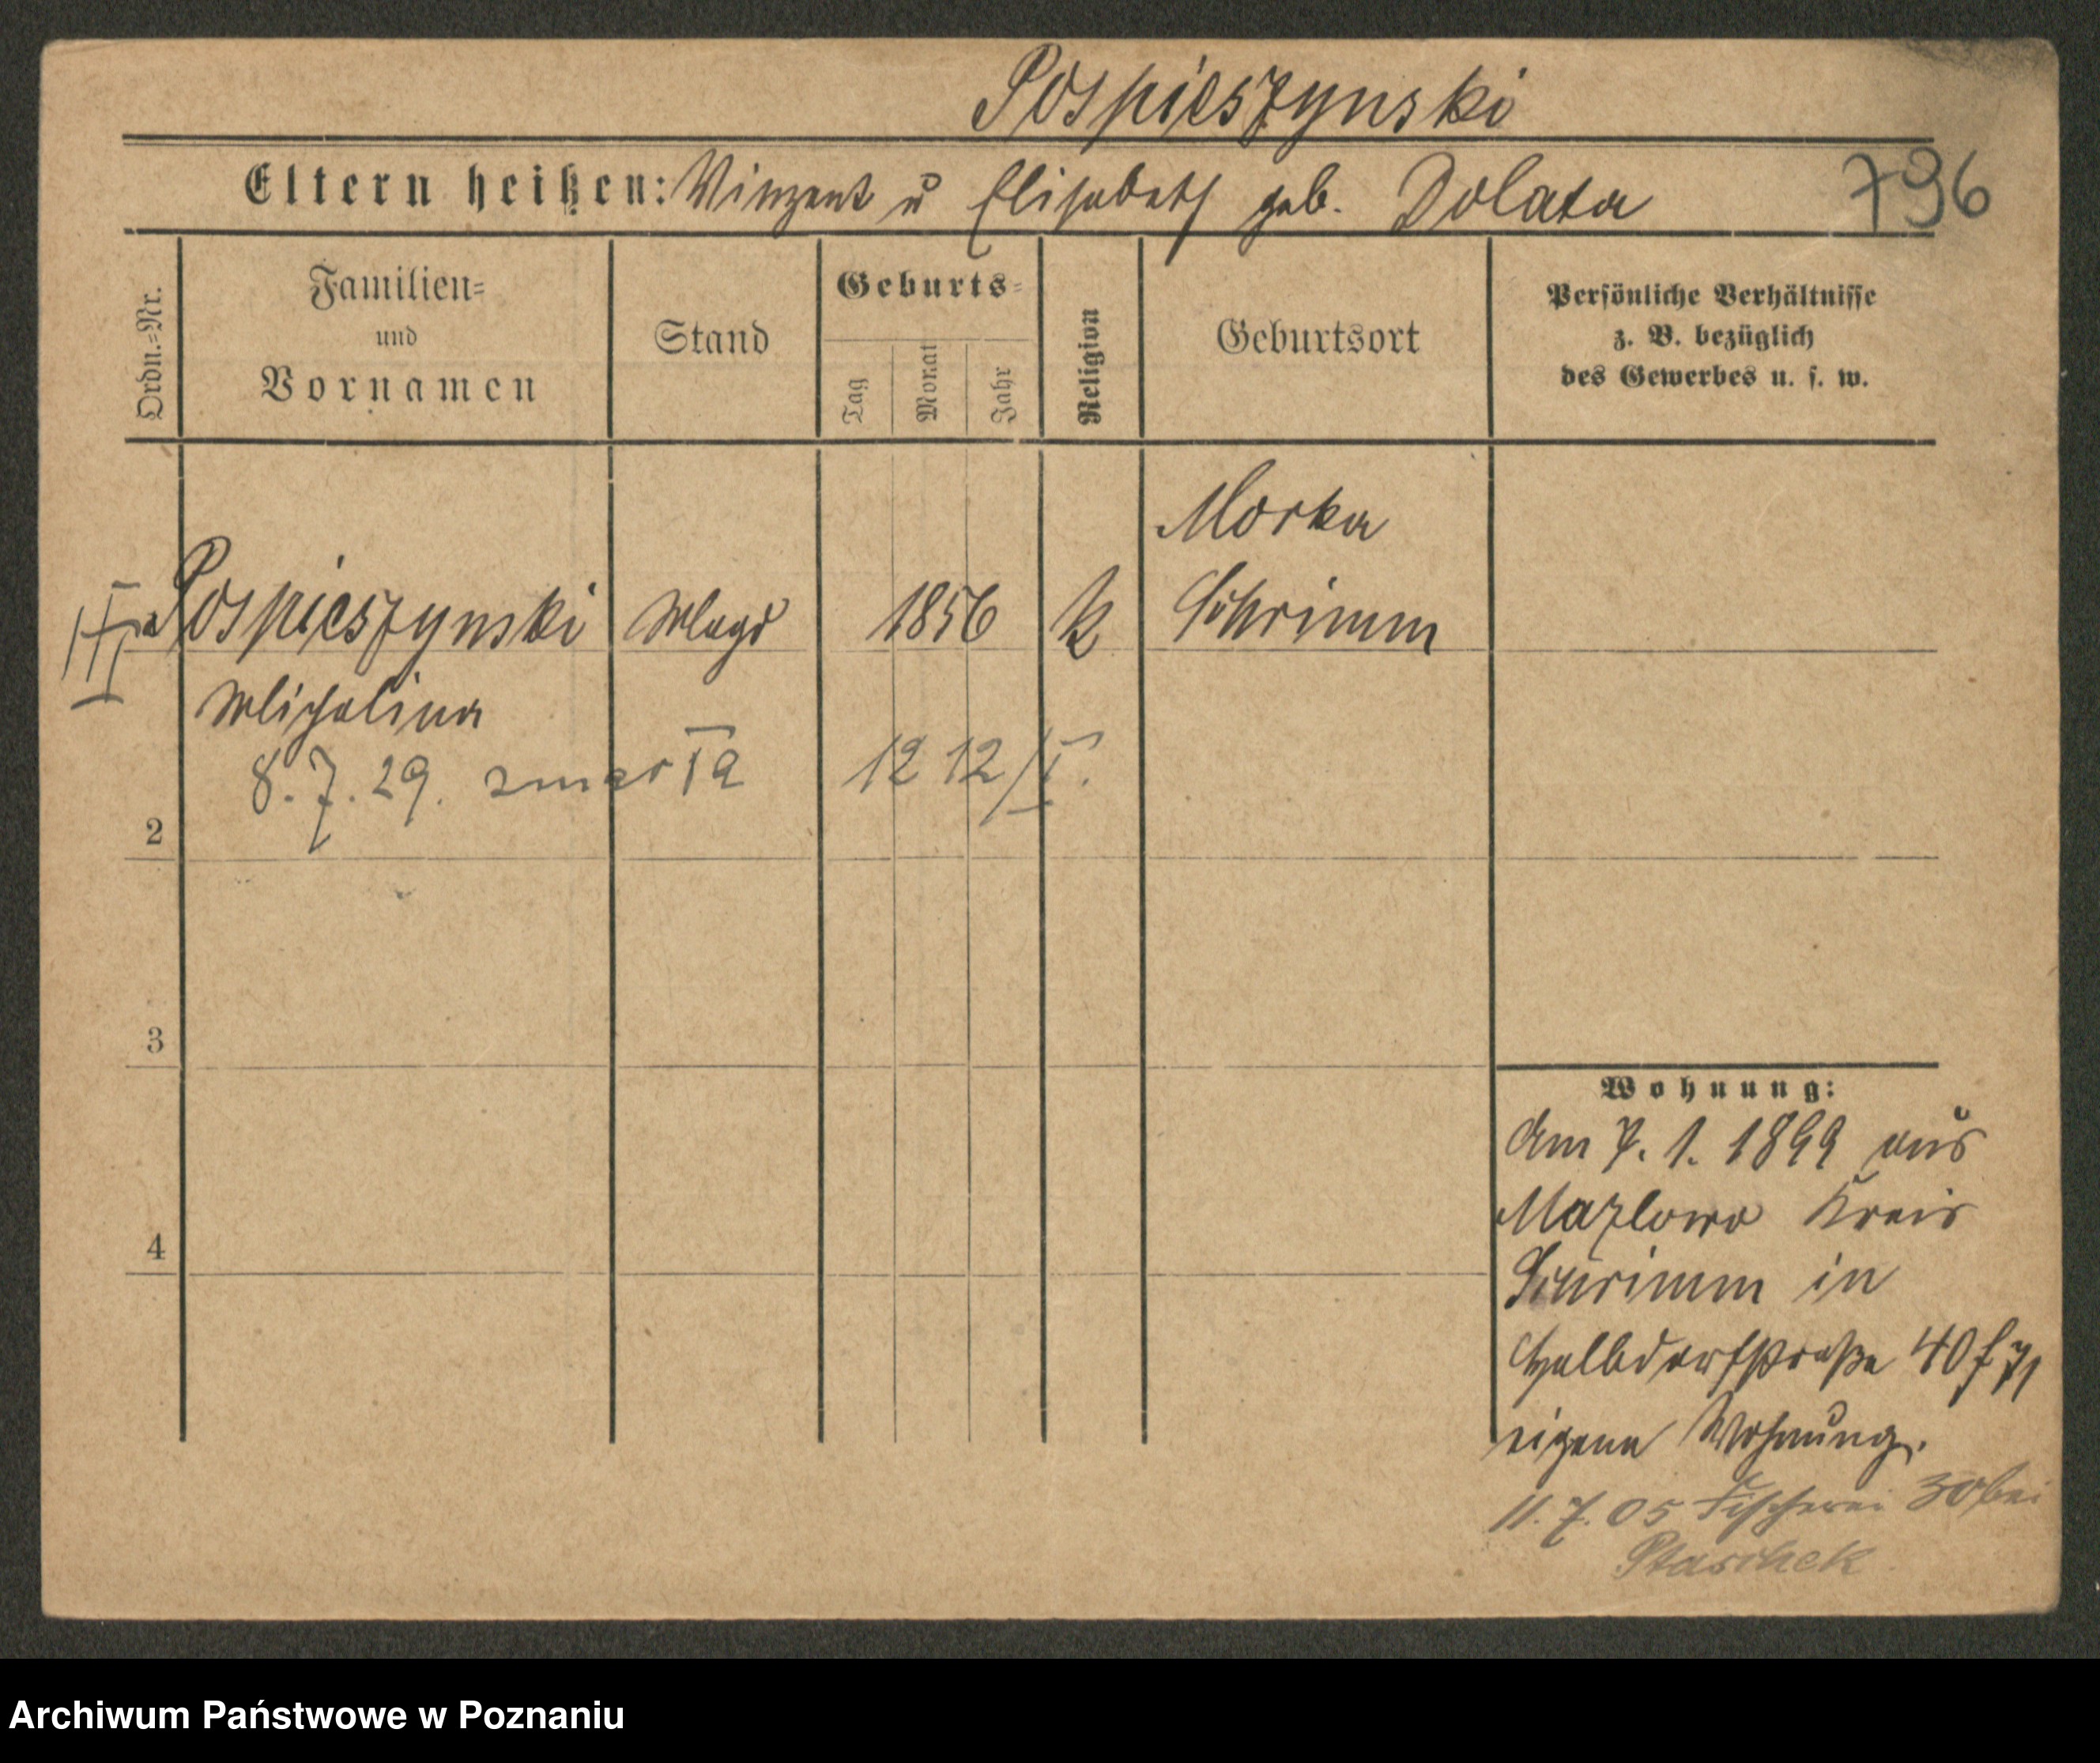 Pospieszynski
Eltern heißen: Vinzent u Elisabeth geb. Dolata 796
Ordn.=Nr.
Familien=
und
Vornamen
Stand
Geburts=
Tag
Monat
Jahr
Religion
Geburtsort
Persönliche Verhältnisse
z. B. bezüglich
des Gewerbes u. s. w.
Morka
Pospieszynski Magd 1856 k Schrimm
Michalina
8.7.29. 12 12/I.
2
3
4
Wohnung:
Am 7. 1. 1899 aus
Mazlowo Kreis
Schrimm in
Halbdorfstraße 40
eigene Wohnung.
11.7.05 Fischerei 30 bei
Ptaschek
Archiwum Państwowe w Poznaniu